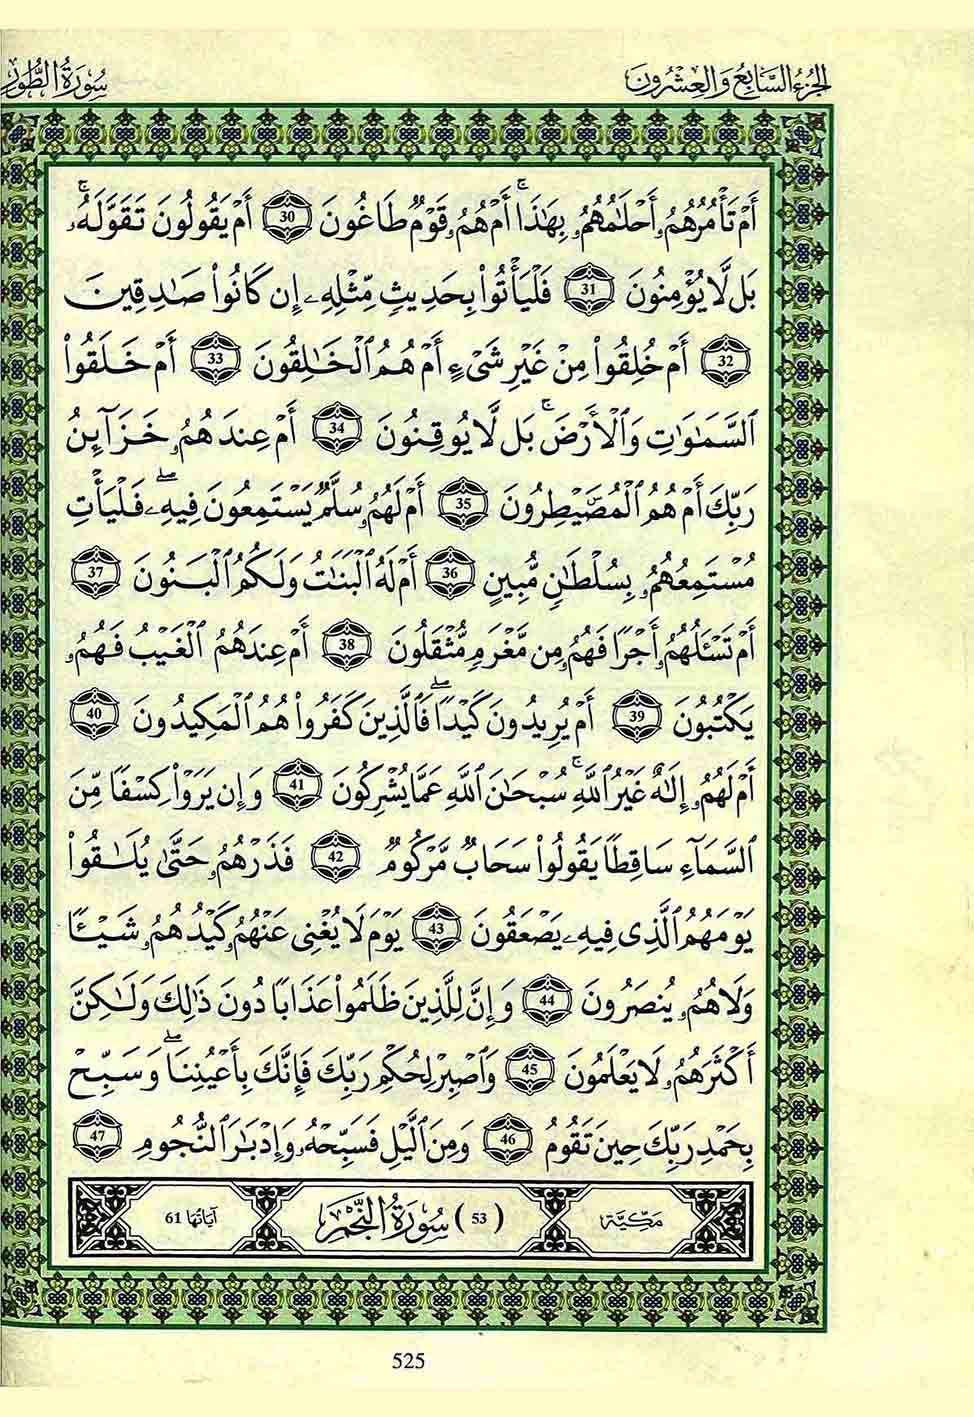 الجزء السابع والعشرون سورة الطور
أَمْ تَأْمُرُهُمُۥٓ أَحْلَٰمُهُمُۥ بِهَٰذَآۚ أَمْ هُمُۥ قَوْمٌ طَاغُونَ 30 أَمْ يَقُولُونَ تَقَوَّلَهُۥۚ
بَل لَّا يُؤْمِنُونَ 31 فَلْيَأْتُوا۟ بِحَدِيثٍ مِّثْلِهِۦٓ إِن كَانُوا۟ صَٰدِقِينَ
32 أَمْ خُلِقُوا۟ مِنْ غَيْرِ شَىْءٍ أَمْ هُمُ ٱلْخَٰلِقُونَ 33 أَمْ خَلَقُوا۟
ٱلسَّمَٰوَٰتِ وَٱلْأَرْضَۚ بَل لَّا يُوقِنُونَ 34 أَمْ عِندَهُمُۥ خَزَآئِنُ
رَبِّكَ أَمْ هُمُ ٱلْمُصَۜيْطِرُونَ 35 أَمْ لَهُمُۥ سُلَّمٌ يَسْتَمِعُونَ فِيهِۦۖ فَلْيَأْتِ
مُسْتَمِعُهُمُۥ بِسُلْطَٰنٍ مُّبِينٍ 36 أَمْ لَهُ ٱلْبَنَٰتُ وَلَكُمُ ٱلْبَنُونَ 37
أَمْ تَسْـَٔلُهُمُۥٓ أَجْرًا فَهُمُۥ مِن مَّغْرَمٍ مُّثْقَلُونَ 38 أَمْ عِندَهُمُ ٱلْغَيْبُ فَهُمُۥ
يَكْتُبُونَ 39 أَمْ يُرِيدُونَ كَيْدًاۖ فَٱلَّذِينَ كَفَرُوا۟ هُمُ ٱلْمَكِيدُونَ 40
أَمْ لَهُمُۥٓ إِلَٰهٌ غَيْرُ ٱللَّهِۚ سُبْحَٰنَ ٱللَّهِ عَمَّا يُشْرِكُونَ 41 وَإِن يَرَوْا۟ كِسْفًا مِّنَ
ٱلسَّمَآءِ سَاقِطًا يَقُولُوا۟ سَحَابٌ مَّرْكُومٌ 42 فَذَرْهُمُۥ حَتَّىٰ يُلَٰقُوا۟
يَوْمَهُمُ ٱلَّذِى فِيهِۦ يَصْعَقُونَ 43 يَوْمَ لَا يُغْنِى عَنْهُمُۥ كَيْدُهُمُۥ شَيْـًٔا
وَلَا هُمُۥ يُنصَرُونَ 44 وَإِنَّ لِلَّذِينَ ظَلَمُوا۟ عَذَابًا دُونَ ذَٰلِكَ وَلَٰكِنَّ
أَكْثَرَهُمُۥ لَا يَعْلَمُونَ 45 وَٱصْبِرْ لِحُكْمِ رَبِّكَ فَإِنَّكَ بِأَعْيُنِنَاۖ وَسَبِّحْ
بِحَمْدِ رَبِّكَ حِينَ تَقُومُ 46 وَمِنَ ٱلَّيْلِ فَسَبِّحْهُۥ وَإِدْبَٰرَ ٱلنُّجُومِ 47
مكية (53) سورة النجم آياتها 61
525